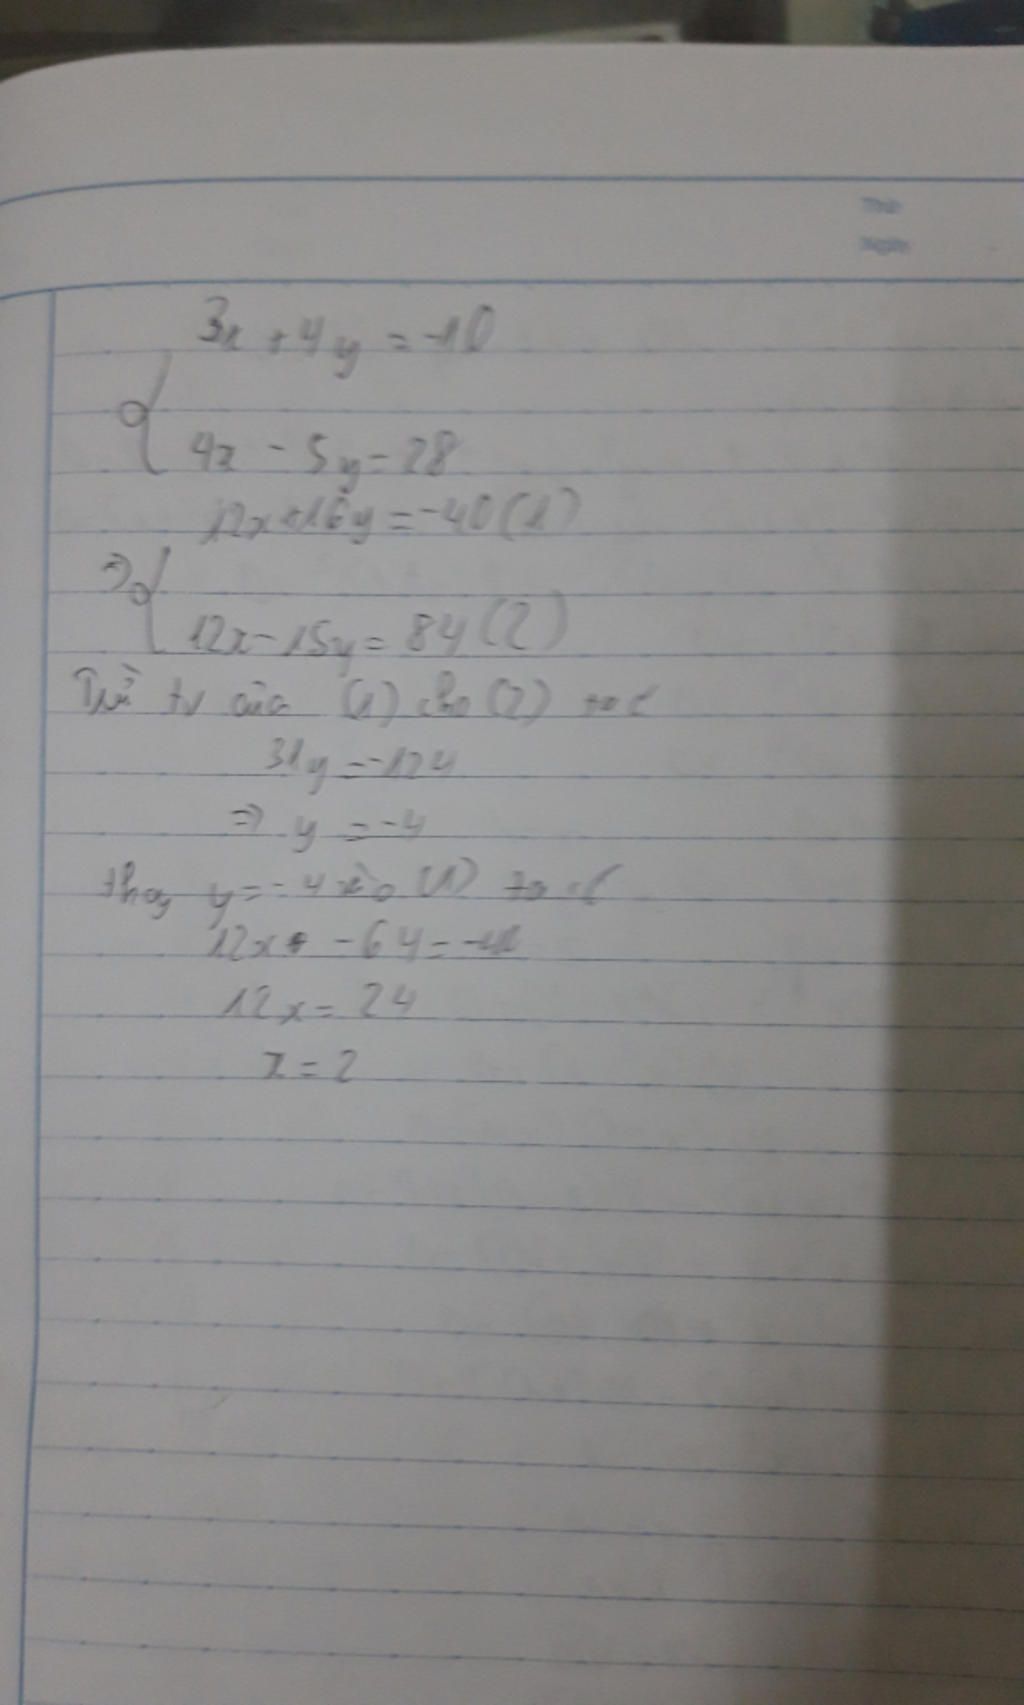 Thứ
Ngày
3x + 4y = -10
4x - 5y = 28
12x + 16y = -40 (1)
=>
12x - 15y = 84 (2)
Trừ tv của (1) cho (2) ta đc
31y = -124
=> y = -4
thay y = -4 vào (1) ta đc
12x - 64 = -40
12x = 24
x = 2